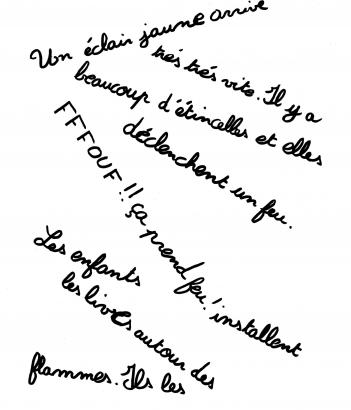 Un éclair jaune arrive
trés trés vite. Il y a
beaucoup d'étincelles et elles
déclenchent un feu.
FFFOUF!! ça prend feu!
Les enfants installent
les livres autour des
flammes. Ils les